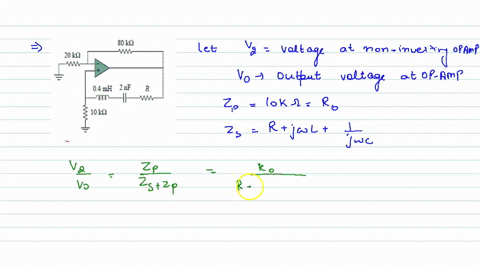 ⇒
80 kΩ
20 kΩ
0.4 mH 2 nF R
10 kΩ
let V2 = voltage at non-inverting OPAMP
V0 → Output voltage at OP-AMP
Zp = 10K Ω = R0
Zs = R + jωL + 1/jωc
V2/V0 = Zp/Zs+Zp = R0/R-